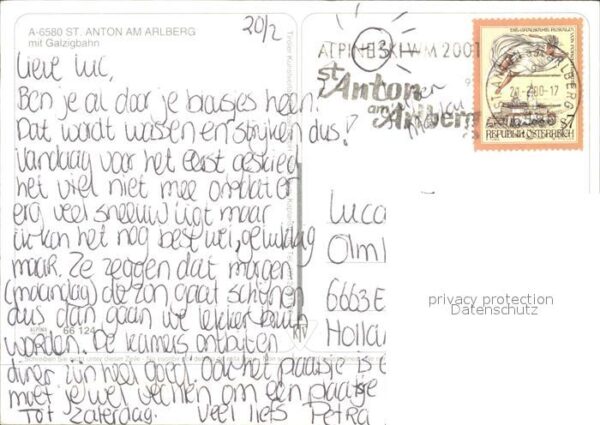 A-6580 ST. ANTON AM ARLBERG
mit Galzigbahn
20/2
Lieve Luc,
Ben je al door je bloesjes heen?
Dat wordt wassen en strijken dus!
Vandaag voor het eerst geskied
het viel niet mee omdat er
erg veel sneeuw ligt maar
ik kan het nog best wel, gelukkig
maar. Ze zeggen dat morgen
(maandag) de zon gaat schijnen
dus dan gaan we lekker bruin
worden. De kamers ontbijten
diner zijn heel goed. Ook het plaatsje is
moet je wel vechten om een plaatsje
Tot zaterdag. Veel liefs Petra
ALPINA
66 124
ALPINE SKI WM 2001
St. Anton
am Arlberg
REPUBLIK ÖSTERREICH
S 7
Luca
Olml
6663E
Hollan
privacy protection
Datenschutz